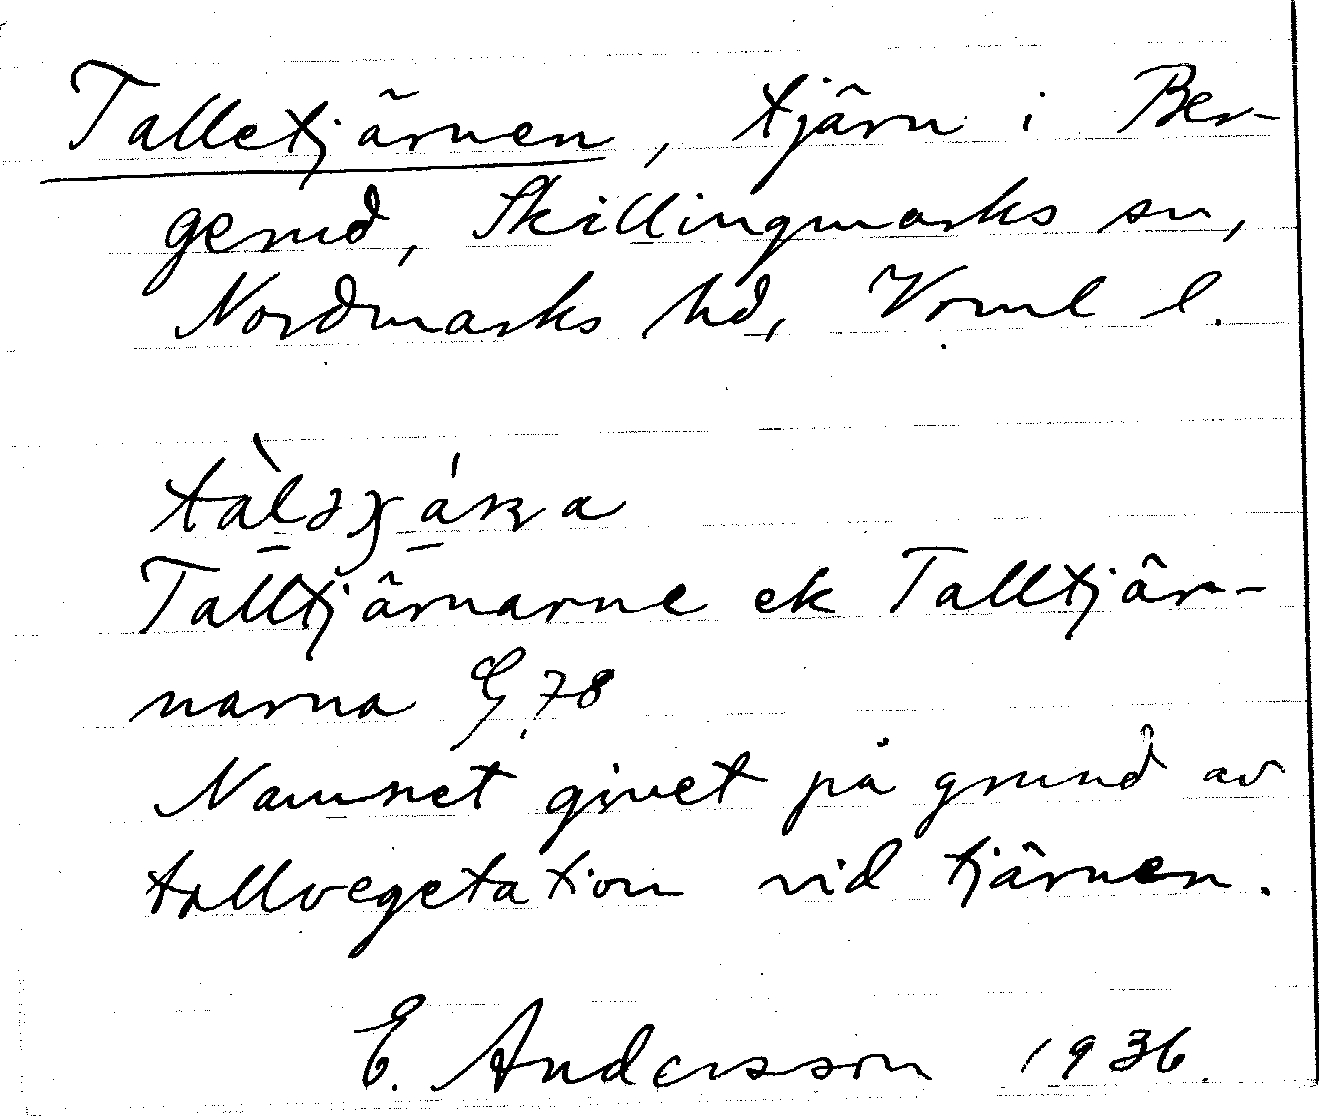 Talletjärnen, tjärn i Ber-
gerud, Skillingmarks sn,
Nordmarks hd, Vrml l.
Talltjärnarne ek Talltjär-
narna G 78
Namnet givet på grund av
tallvegetation vid tjärnen.
E. Andersson 1936.